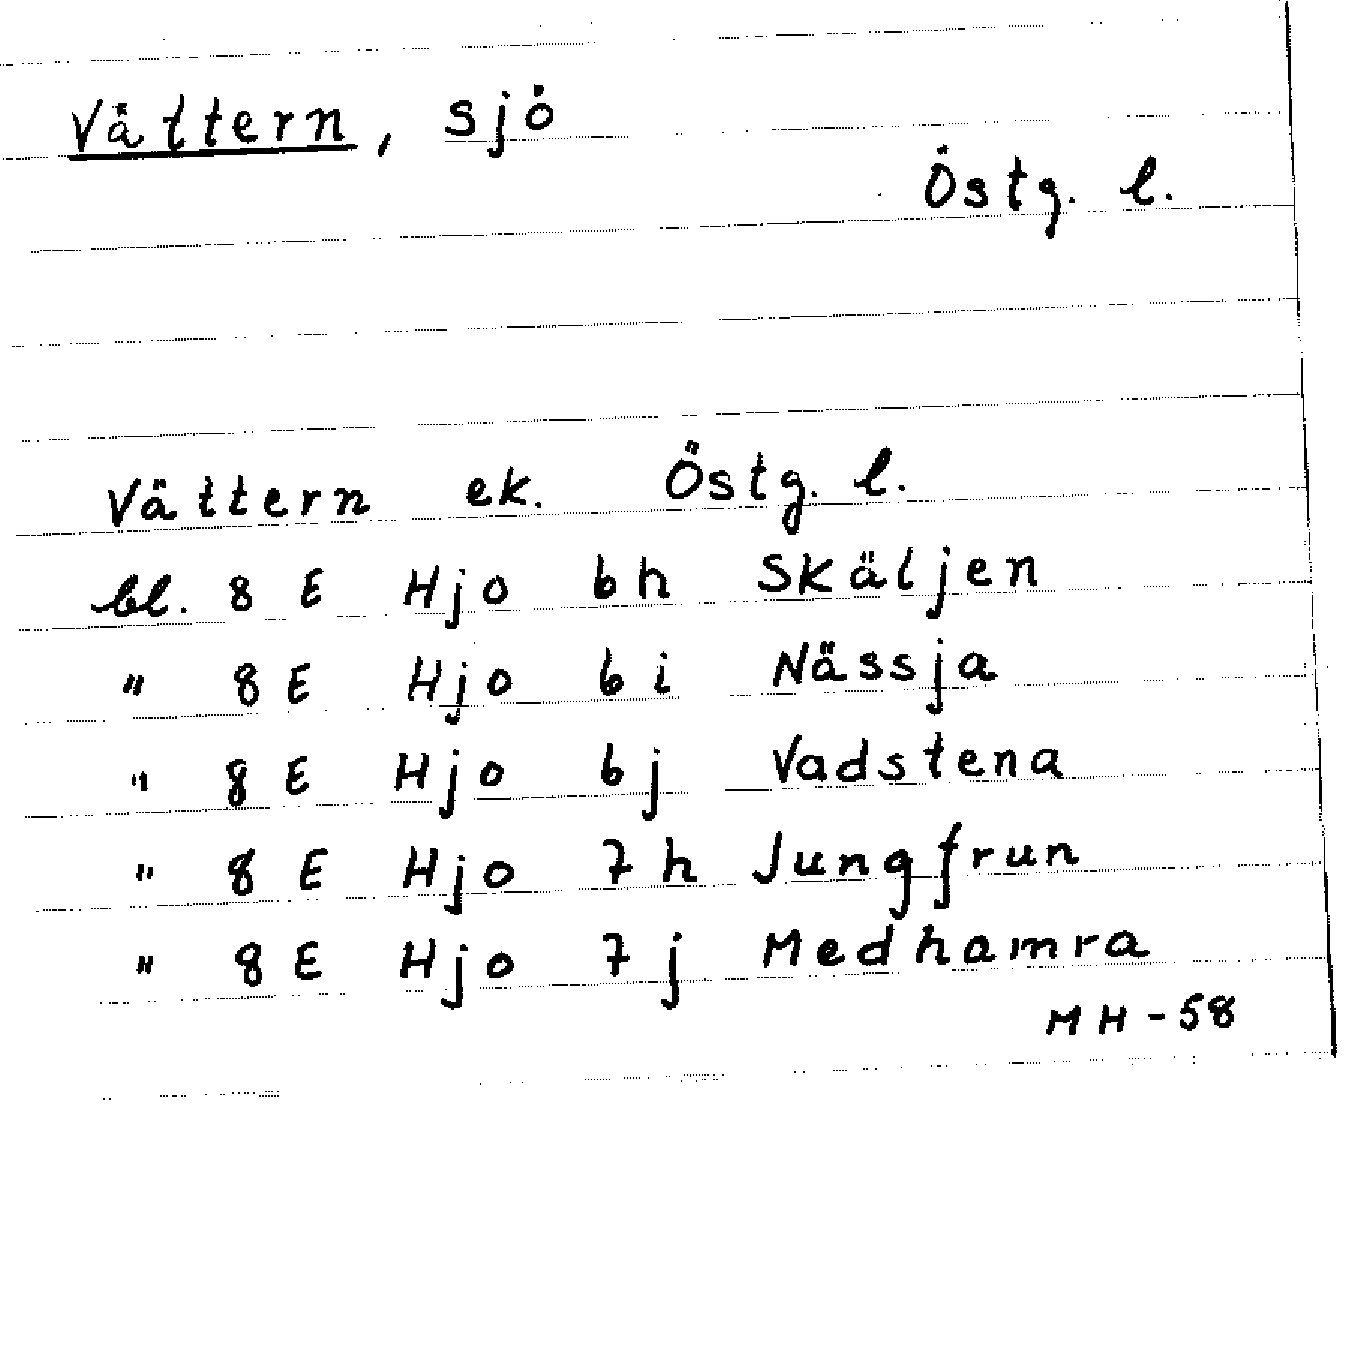 Vättern, sjö
Östg. l.
Vättern ek. Östg. l.
bl. 8 E Hjo 6 h Skäljen
" 8 E Hjo 6 i Nässja
" 8 E Hjo 6 j Vadstena
" 8 E Hjo 7 h Jungfrun
" 8 E Hjo 7 j Medhamra
MH-58